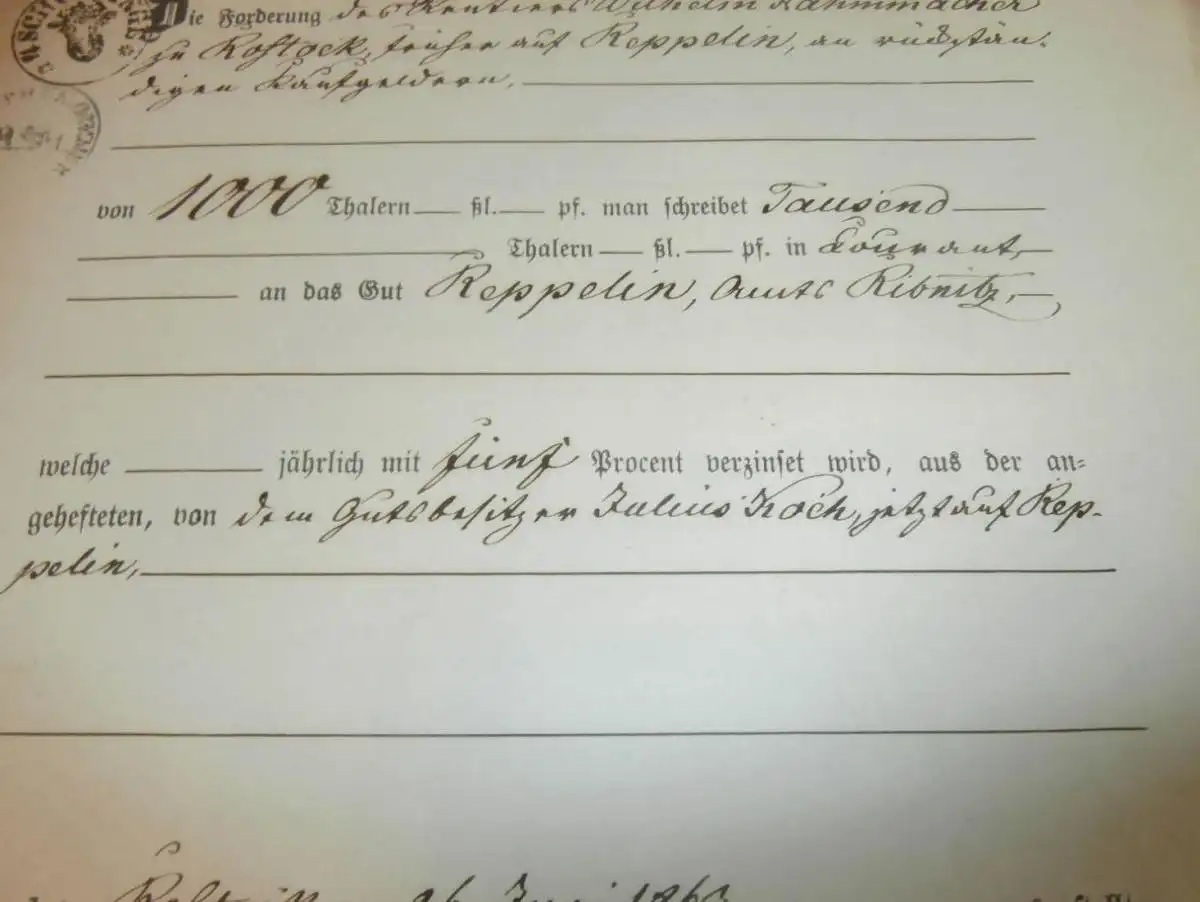 Die Forderung des Rentiers Wilhelm Rahmmacher
zu Rostock, früher auf Reppelin, an rückstän-
digen Kaufgeldern,
von 1000 Thalern — ßl. — pf. man schreibet Tausend
Thalern — ßl. — pf. in Courant,
an das Gut Reppelin, Amts Ribnitz,
welche jährlich mit fünf Procent verzinset wird, aus der an=
gehefteten, von dem Gutsbesitzer Julius Koch, jetzt auf Rep-
pelin,